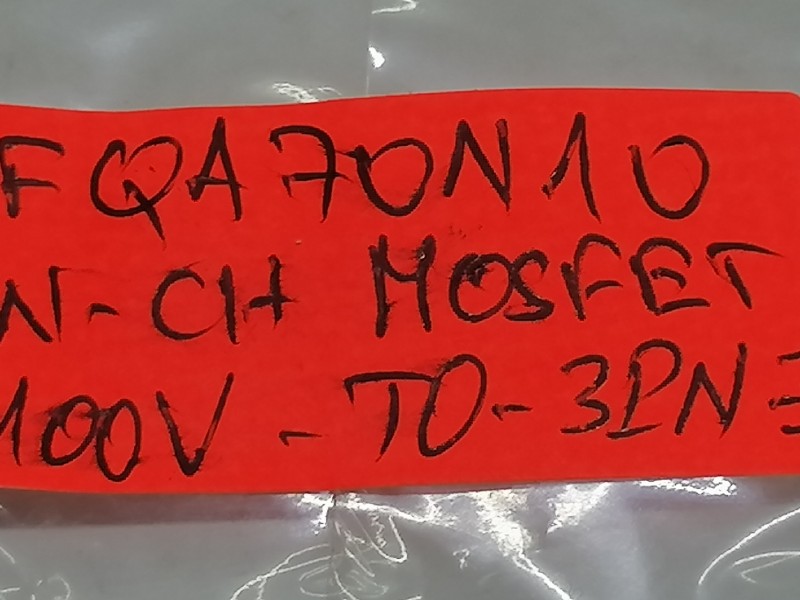 FQA70N10
N-CH MOSFET
100V - TO-3PN